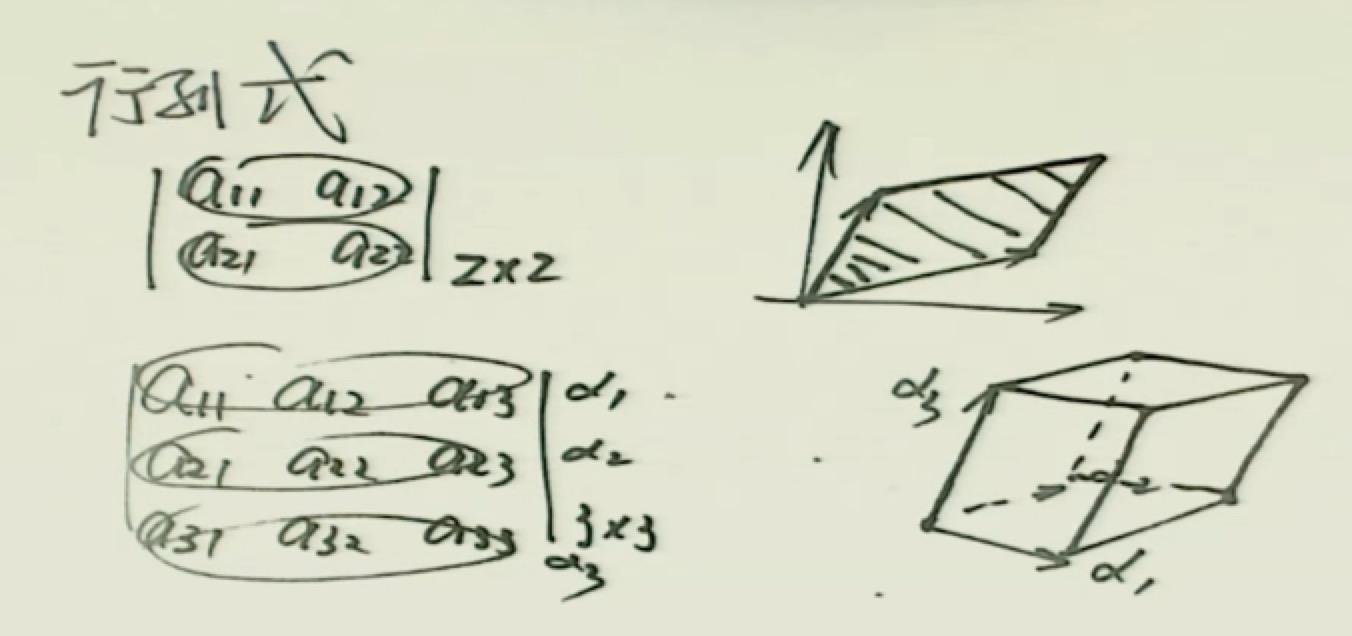 行列式
| a11 a12 |
| a21 a22 | 2×2
| a11 a12 a13 | α1
| a21 a22 a23 | α2
| a31 a32 a33 | 3×3
α3
α3
α2
α1